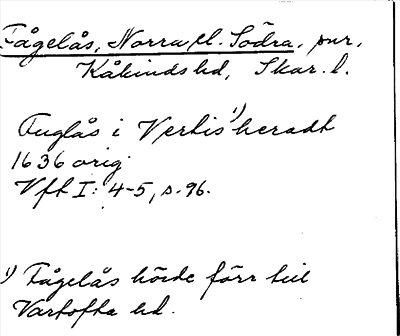 Fågelås, Norra o. Södra, snr,
Kåkinds hd, Skar. l.
Fuglås i Vertis¹⁾heradt
1636 orig.
Vft I: 4-5, s. 96.
¹⁾ Fågelås hörde förr till
Vartofta hd.